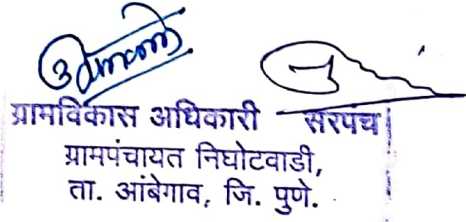 ग्रामविकास अधिकारी सरपंच
ग्रामपंचायत निघोटवाडी,
ता. आंबेगाव, जि. पुणे.